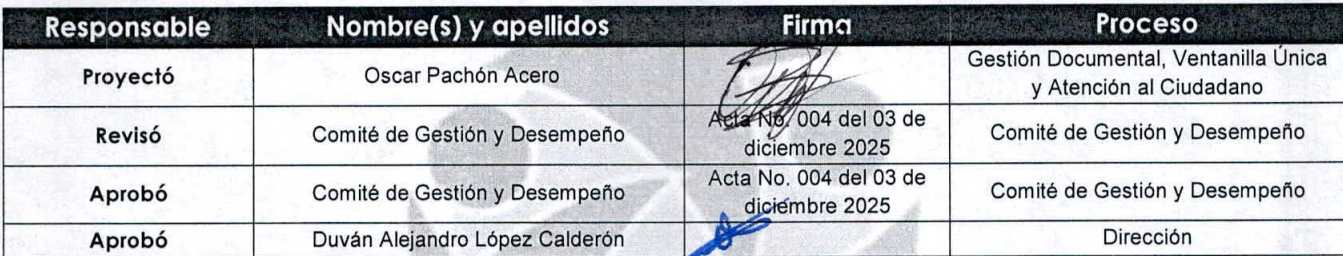 Responsable Nombre(s) y apellidos Firma Proceso
Proyectó Oscar Pachón Acero Gestión Documental, Ventanilla Única
y Atención al Ciudadano
Revisó Comité de Gestión y Desempeño Acta No. 004 del 03 de
diciembre 2025 Comité de Gestión y Desempeño
Aprobó Comité de Gestión y Desempeño Acta No. 004 del 03 de
diciembre 2025 Comité de Gestión y Desempeño
Aprobó Duván Alejandro López Calderón Dirección